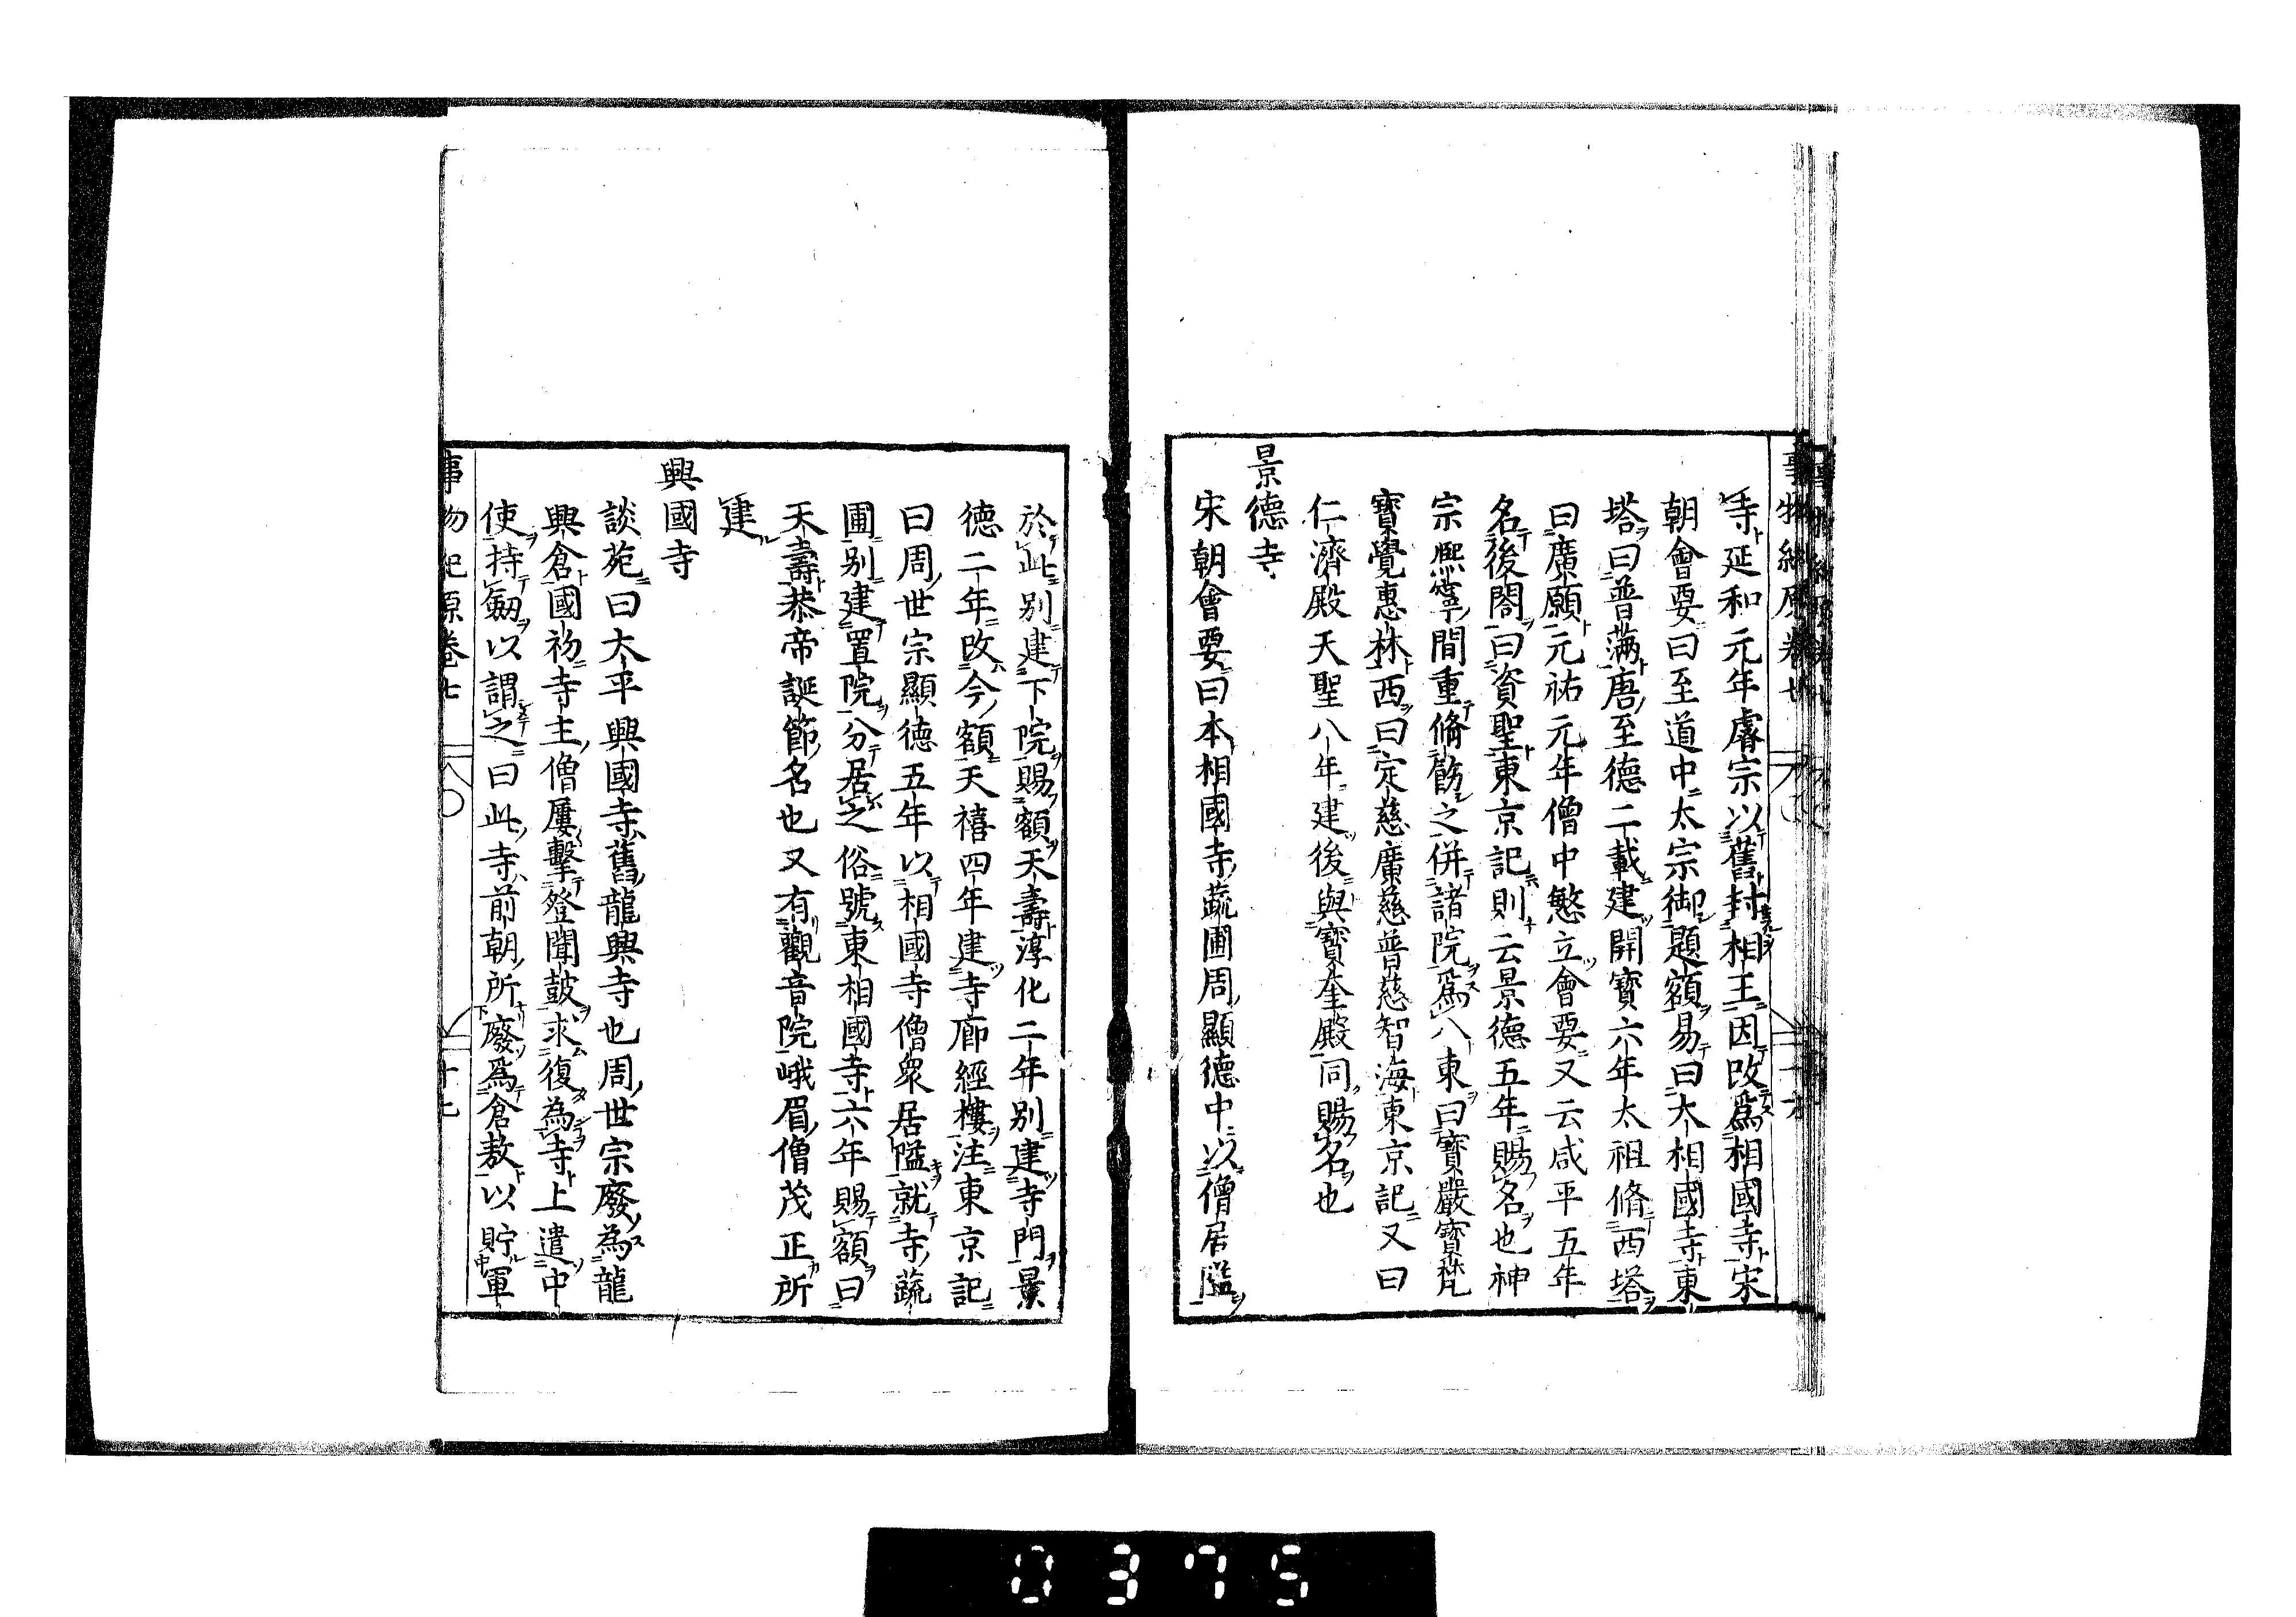 寺延和元年睿宗以舊封相王因改爲相國寺宋
朝會要曰至道中太宗御題額易曰大相國寺東
塔曰普滿唐至德二載建開寶六年太祖脩西塔
曰廣願元祐元年僧中慜立會要又云咸平五年
名後閤曰資聖東京記則云景德五年賜名也神
宗熈寧間重脩飭之併諸院爲八東曰寶嚴寶梵
寶覺惠林西曰定慈廣慈普慈智海東京記又曰
仁濟殿天聖八年建後與寶奎殿同賜名也
景德寺
宋朝會要曰本相國寺蔬圃周顯德中以僧居隘
於此別建下院賜額天壽淳化二年別建寺門景
德二年改今額天禧四年建寺廊經樓注東京記
曰周世宗顯德五年以相國寺僧衆居隘就寺蔬
圃別建置院分居之俗號東相國寺六年賜額曰
天壽恭帝誕節名也又有觀音院峨眉僧茂正所
建
興國寺
談苑曰太平興國寺舊龍興寺也周世宗廢為龍
興倉國初寺主僧屢擊登聞鼓求復為寺上遣中
使持劒以謂之曰此寺前朝所廢爲倉敖以貯軍
事物紀原卷七
十七
0375